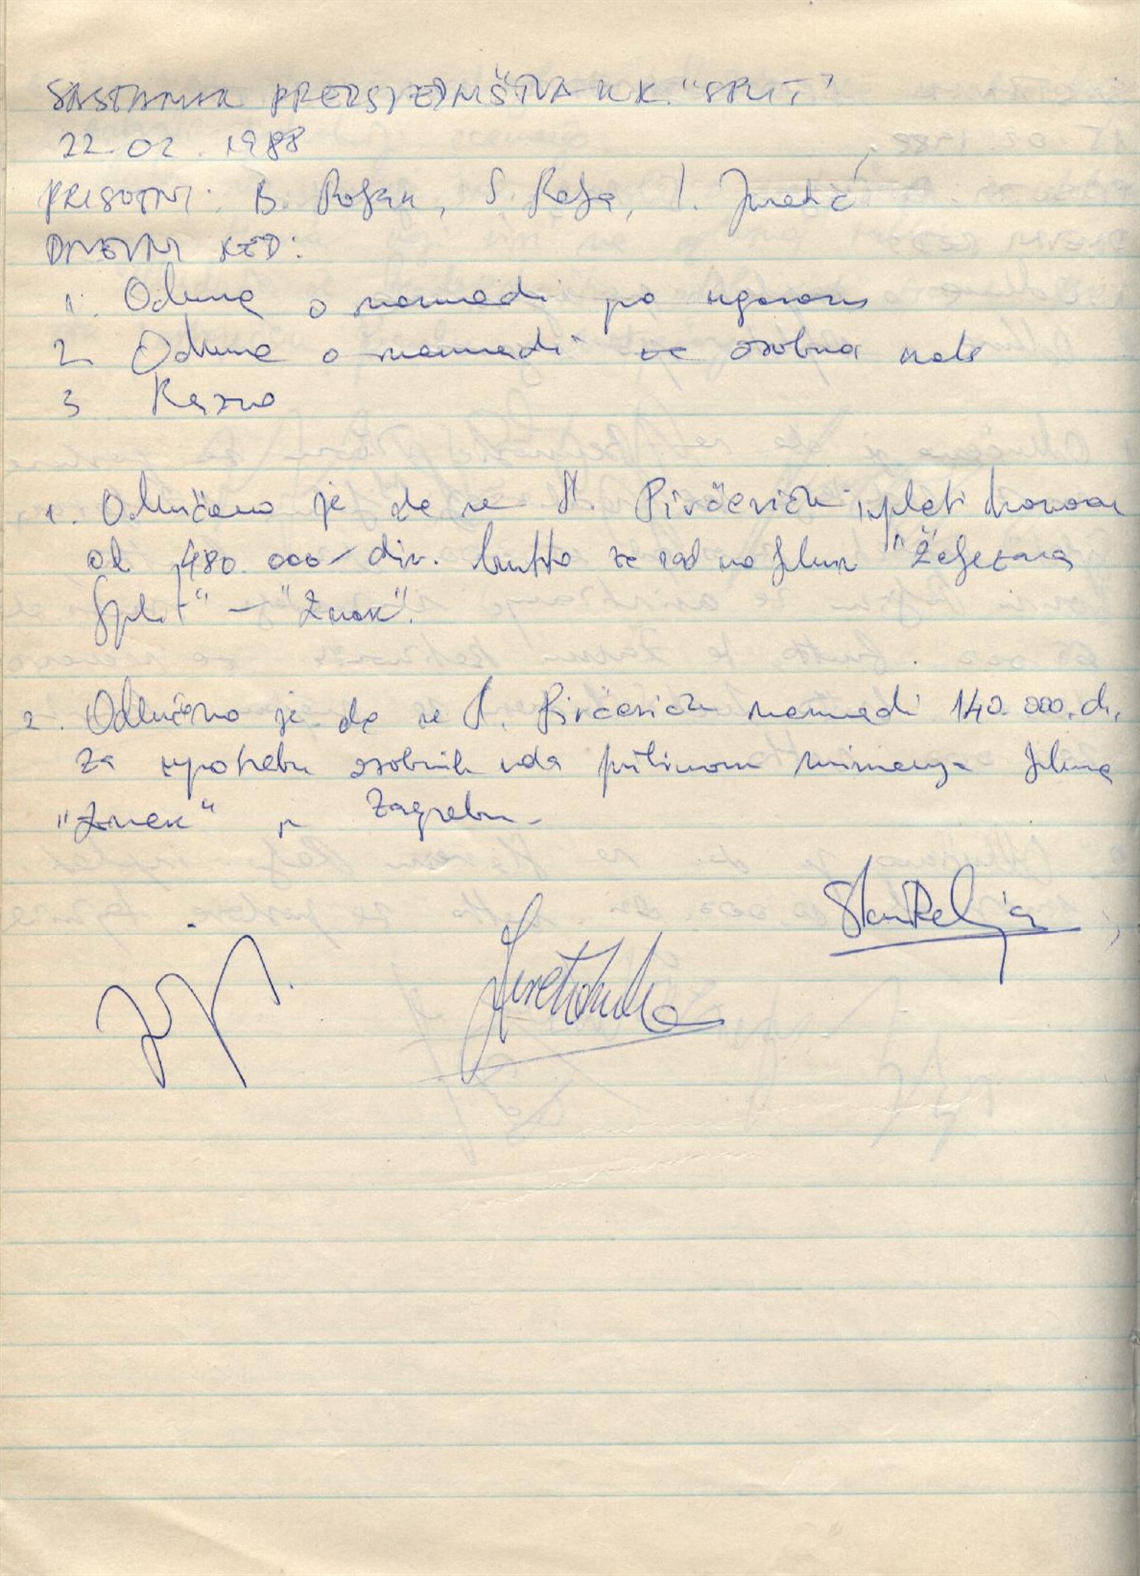 SASTANAK PREDSJEDNIŠTVA K.K. "SPLIT"
22.02.1988
PRISUTNI: B. Poljak, S. Relja, I. Juretić
DNEVNI RED:
1. Odluka o naknadi po ugovoru
2. Odluka o naknadi za osobna kola
3 Razno
1. Odlučeno je da se A. Pivčeviću isplati honorar
od 480.000 din. brutto za rad na filmu "Željezara
Split" - "Znak".
2. Odlučeno je da se A. Pivčeviću naknadi 140.000. d.
za upotrebu osobnih kola prilikom snimanja filma
"Znak" u Zagrebu.